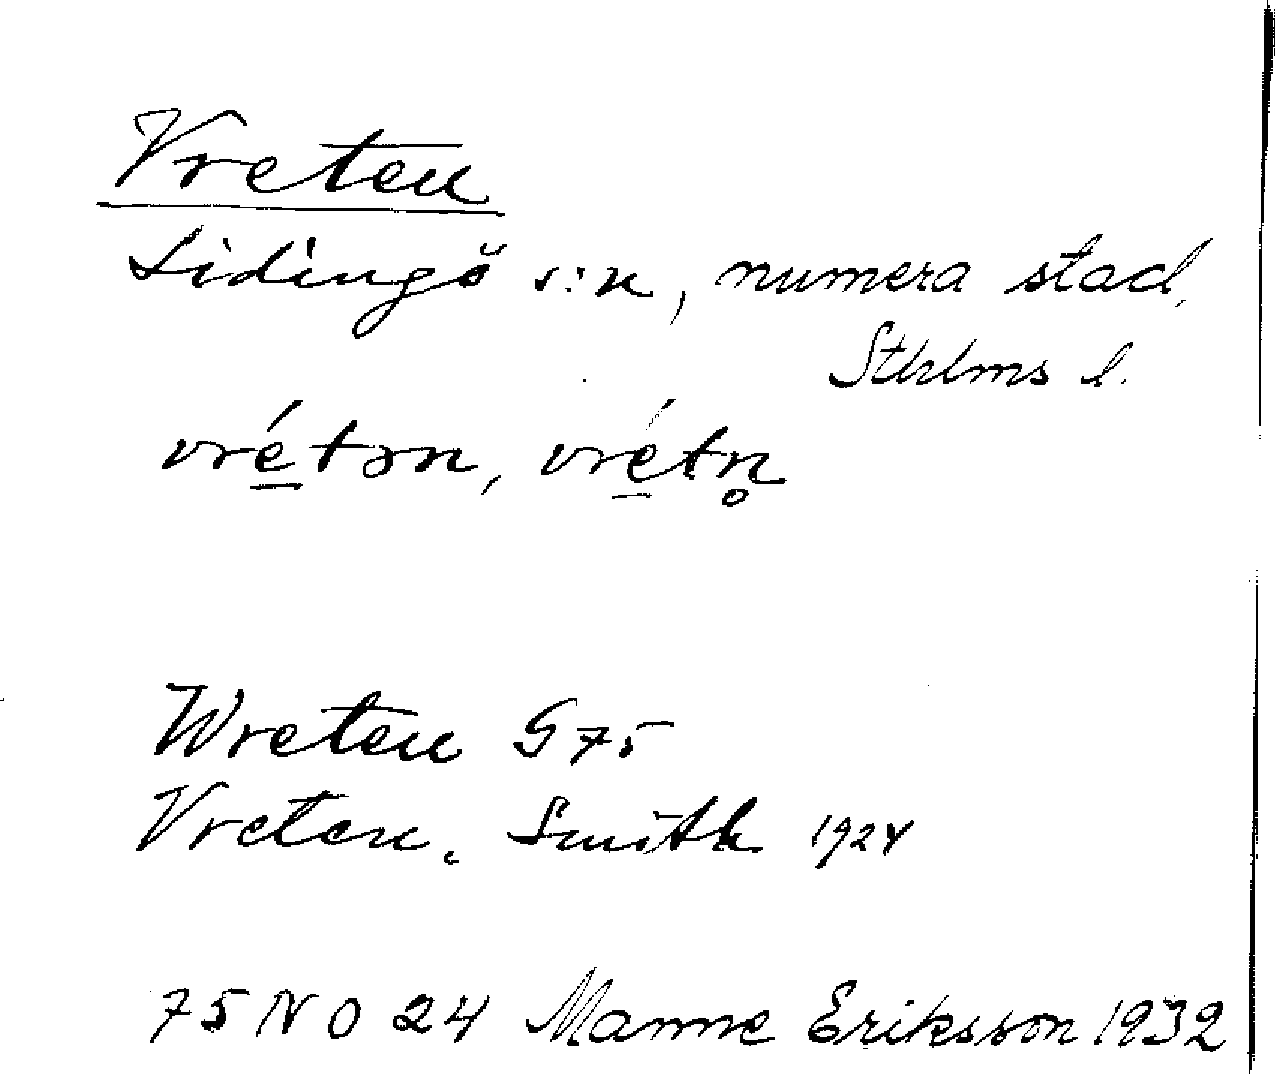 Vreten
Lidingö s:n, numera stad,
Sthlms l.
vré̱tən, vré̱tn̥
Wreten G 75
Vreten. Smith 1924
75 NO 24 Manne Eriksson 1932